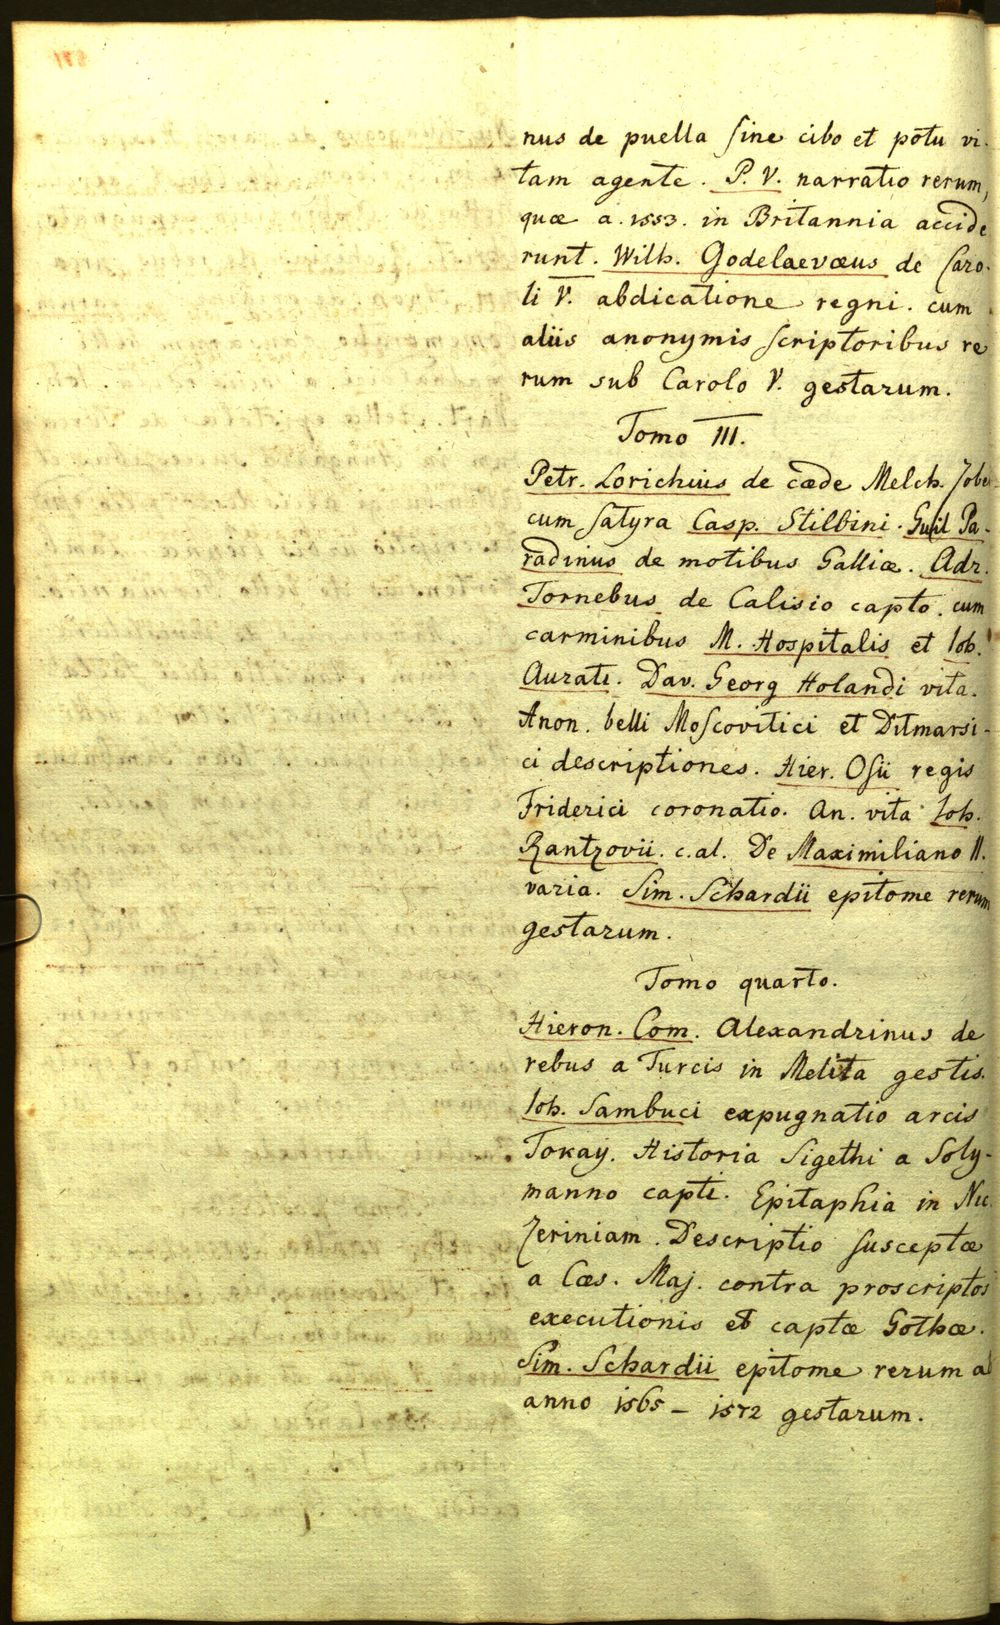 nus de puella sine cibo et potu vi-
tam agente. P. V. narratio rerum,
quæ a. 1553. in Britannia accide
runt. Wilh. Godelaevæus de Caro-
li V. abdicatione regni. cum
aliis anonymis scriptoribus re
rum sub Carolo V. gestarum.
Tomo III.
Petr. Lorichius de cæde Melch. Zobel
cum satyra Casp. Stilbini. Guil Pa-
radinus de motibus Galliæ. Adr.
Tornebus de Calisio capto. cum
carminibus M. Hospitalis et Ioh.
Aurati. Dav. Georg Holandi vita.
Anon. belli Moscovitici et Ditmarsi-
ci descriptiones. Hier. Osii regis
Friderici coronatio. An. vita Ioh.
Rantzovii. c. al. De Maximiliano II.
varia. Sim. Schardii epitome rerum
gestarum.
Tomo quarto.
Hieron. Com. Alexandrinus de
rebus a Turcis in Melita gestis.
Ioh. Sambuci expugnatio arcis
Tokaÿ. Historia Sigethi a Soly-
manno capti. Epitaphia in Nic.
Zeriniam. Descriptio susceptæ
a Cæs. Maj. contra proscriptos
executionis et captæ Gothæ.
Sim. Schardii epitome rerum ab
anno 1565 – 1572 gestarum.